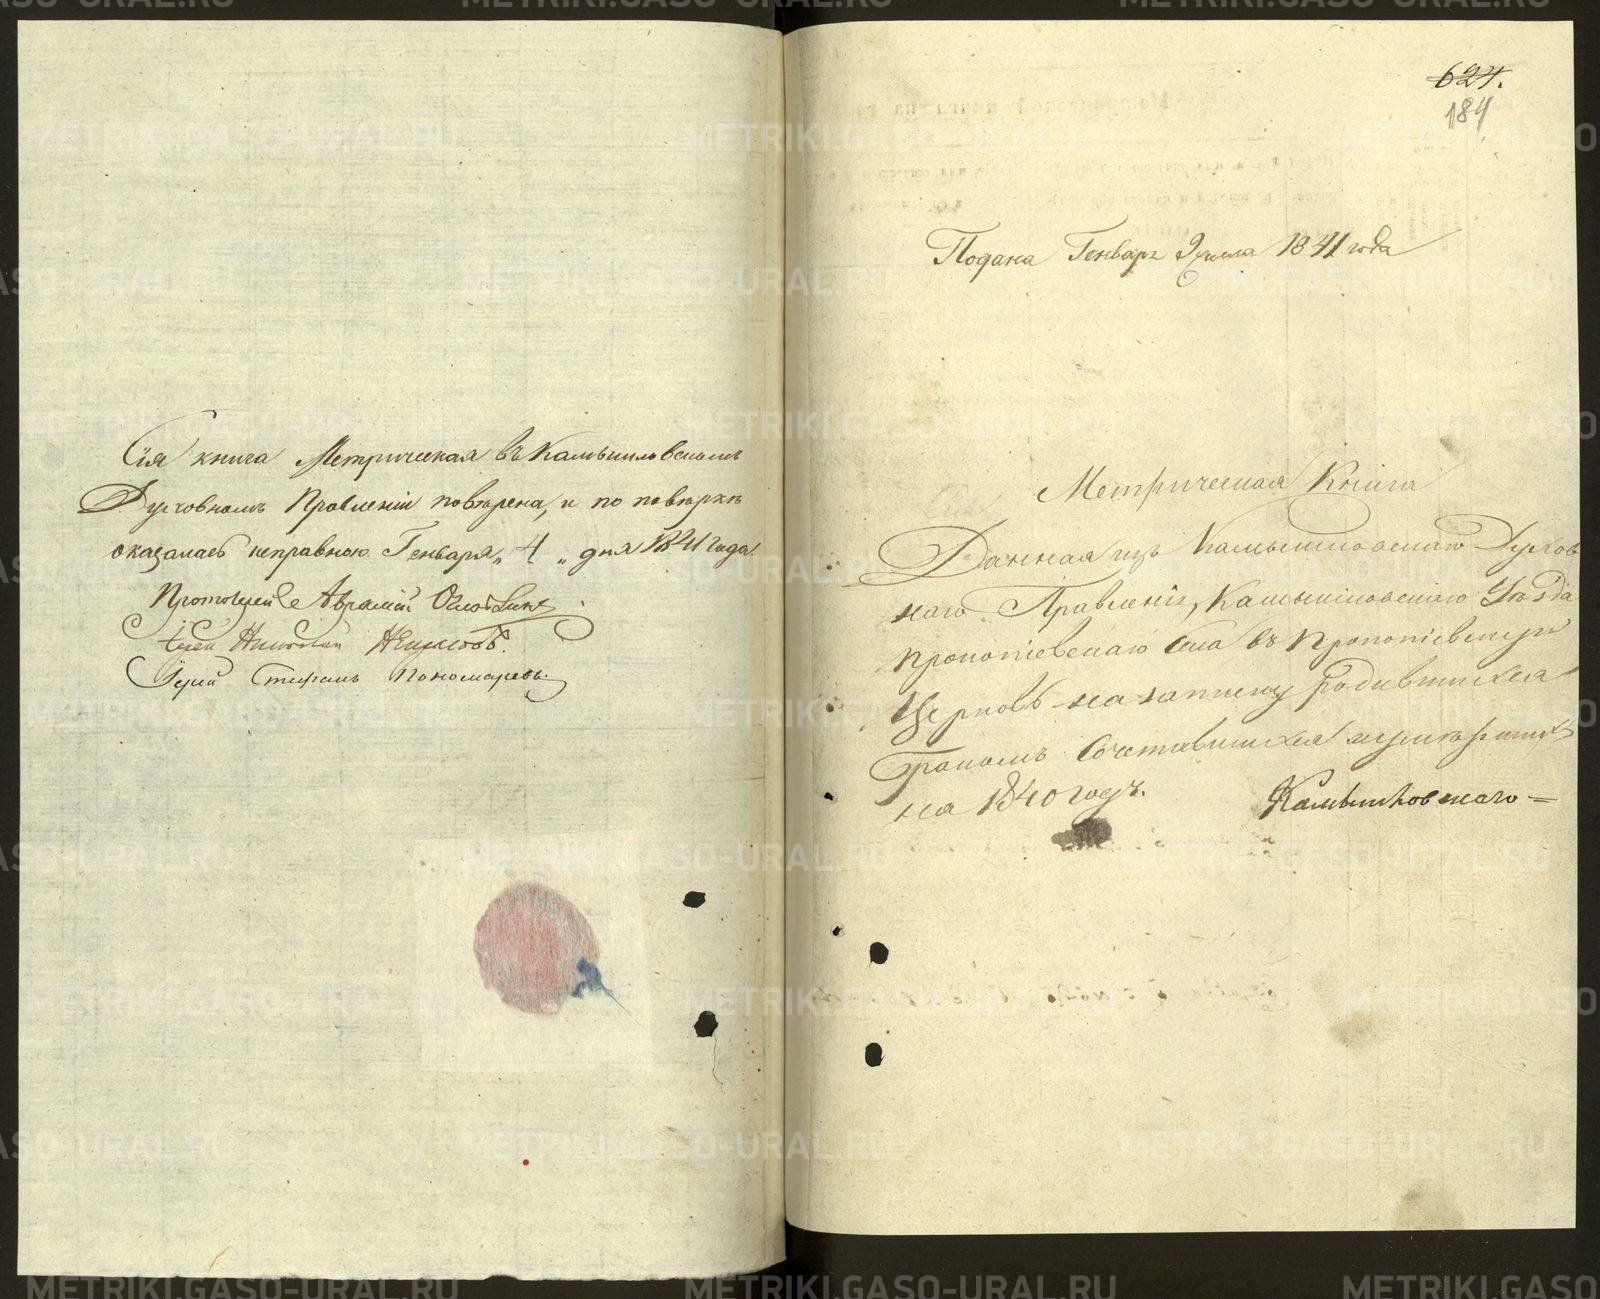 Сія книга Метрическая въ Камышловскомъ
Духовномъ Правленіи повѣрена, и по повѣркѣ
оказалась исправною. Генваря „ 4 „ дня 1841 года.
Протоіерей Аврамій
Іерей Николай
Іерей Стефанъ Пономаревъ.
624.
184
Подана Генваря 9 числа 1841 года
Метрическая Книга
Данная изъ Камышловскаго Духов
наго Правленія, Камышловскаго Уѣзда
Прокопіевскаго Села въ Прокопіевскую
Церковь на записку родившихся
бракомъ сочетавшихся и умершихъ
на 1840 годъ.
Камышловскаго =
METRIKI.GASO-URAL.RU